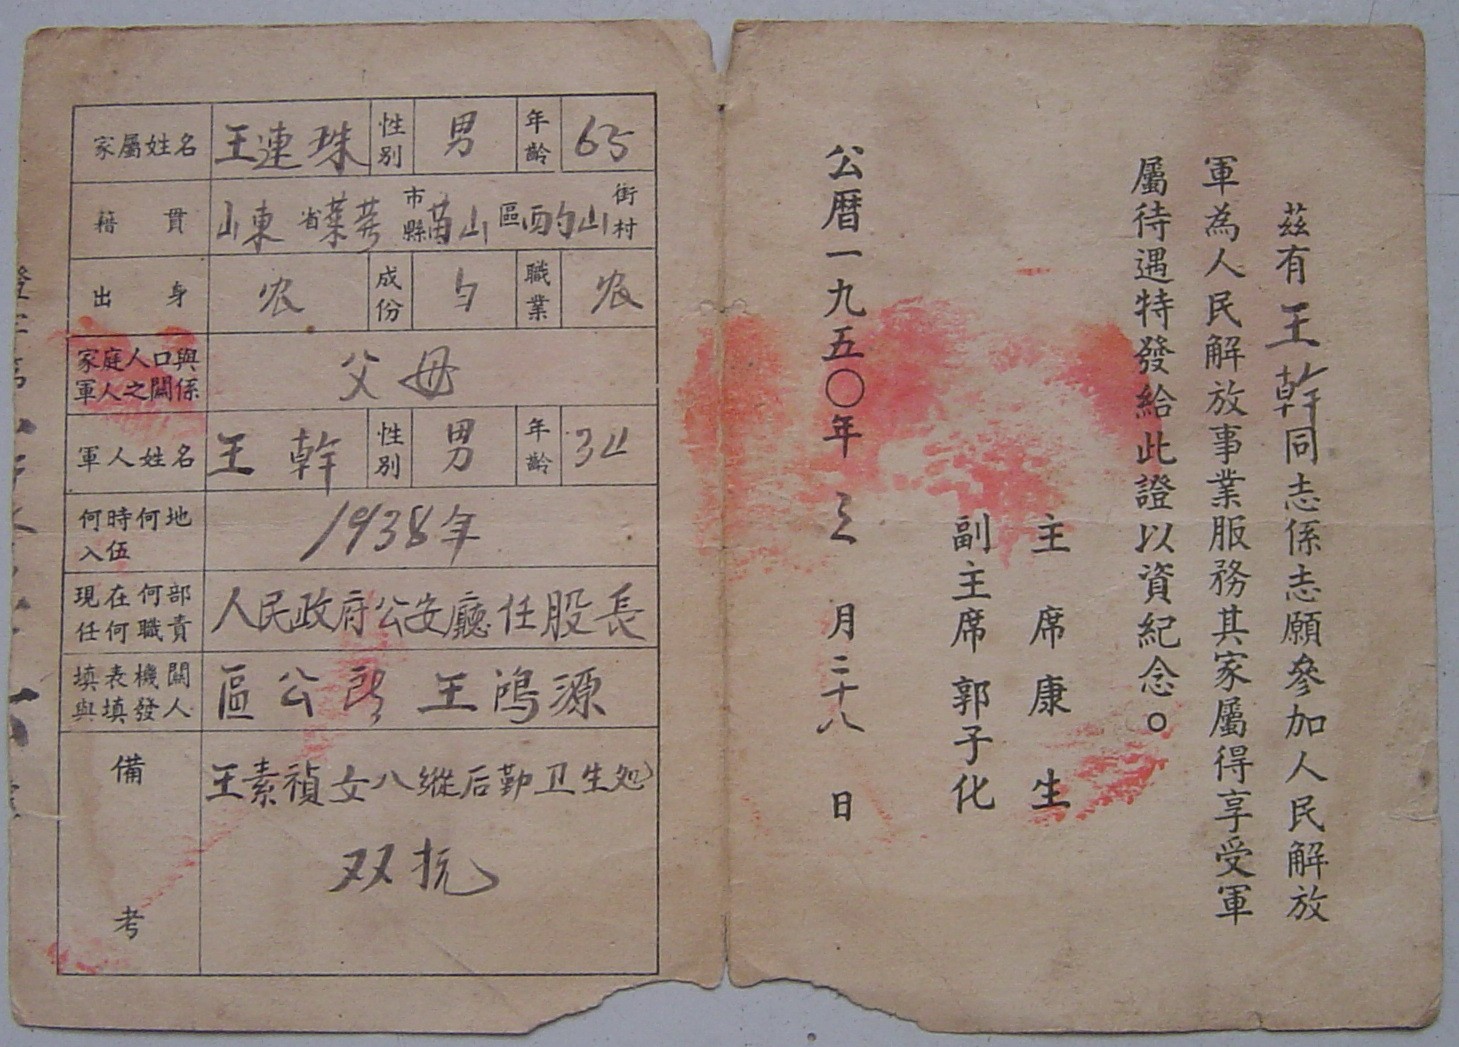 茲有王幹同志係志願參加人民解放
軍為人民解放事業服務其家屬得享受軍
屬待遇特發給此證以資紀念。
主席康生
副主席郭子化
公曆一九五〇年三月二十八日
家屬姓名 王連珠 性別 男 年齡 65
籍貫 山東省萊蕪市縣苗山區酌山街村
出身 农 成份 农 職業 农
家庭人口與軍人之關係 父母
軍人姓名 王幹 性別 男 年齡
何時何地入伍 1938年
現在何部任何職責 人民政府公安廳任股長
填表機關與填發人 區公所 王鴻源
備考 王素禎女八縱后勤卫生处
双抗